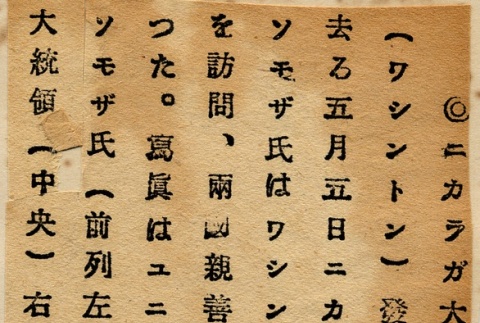 ◎ニカラガ大
(ワシントン)發
去る五月五日ニカ
ソモザ氏はワシン
を訪問、兩國親善
つた。寫眞はユニ
ソモザ氏(前列左
大統領(中央)右